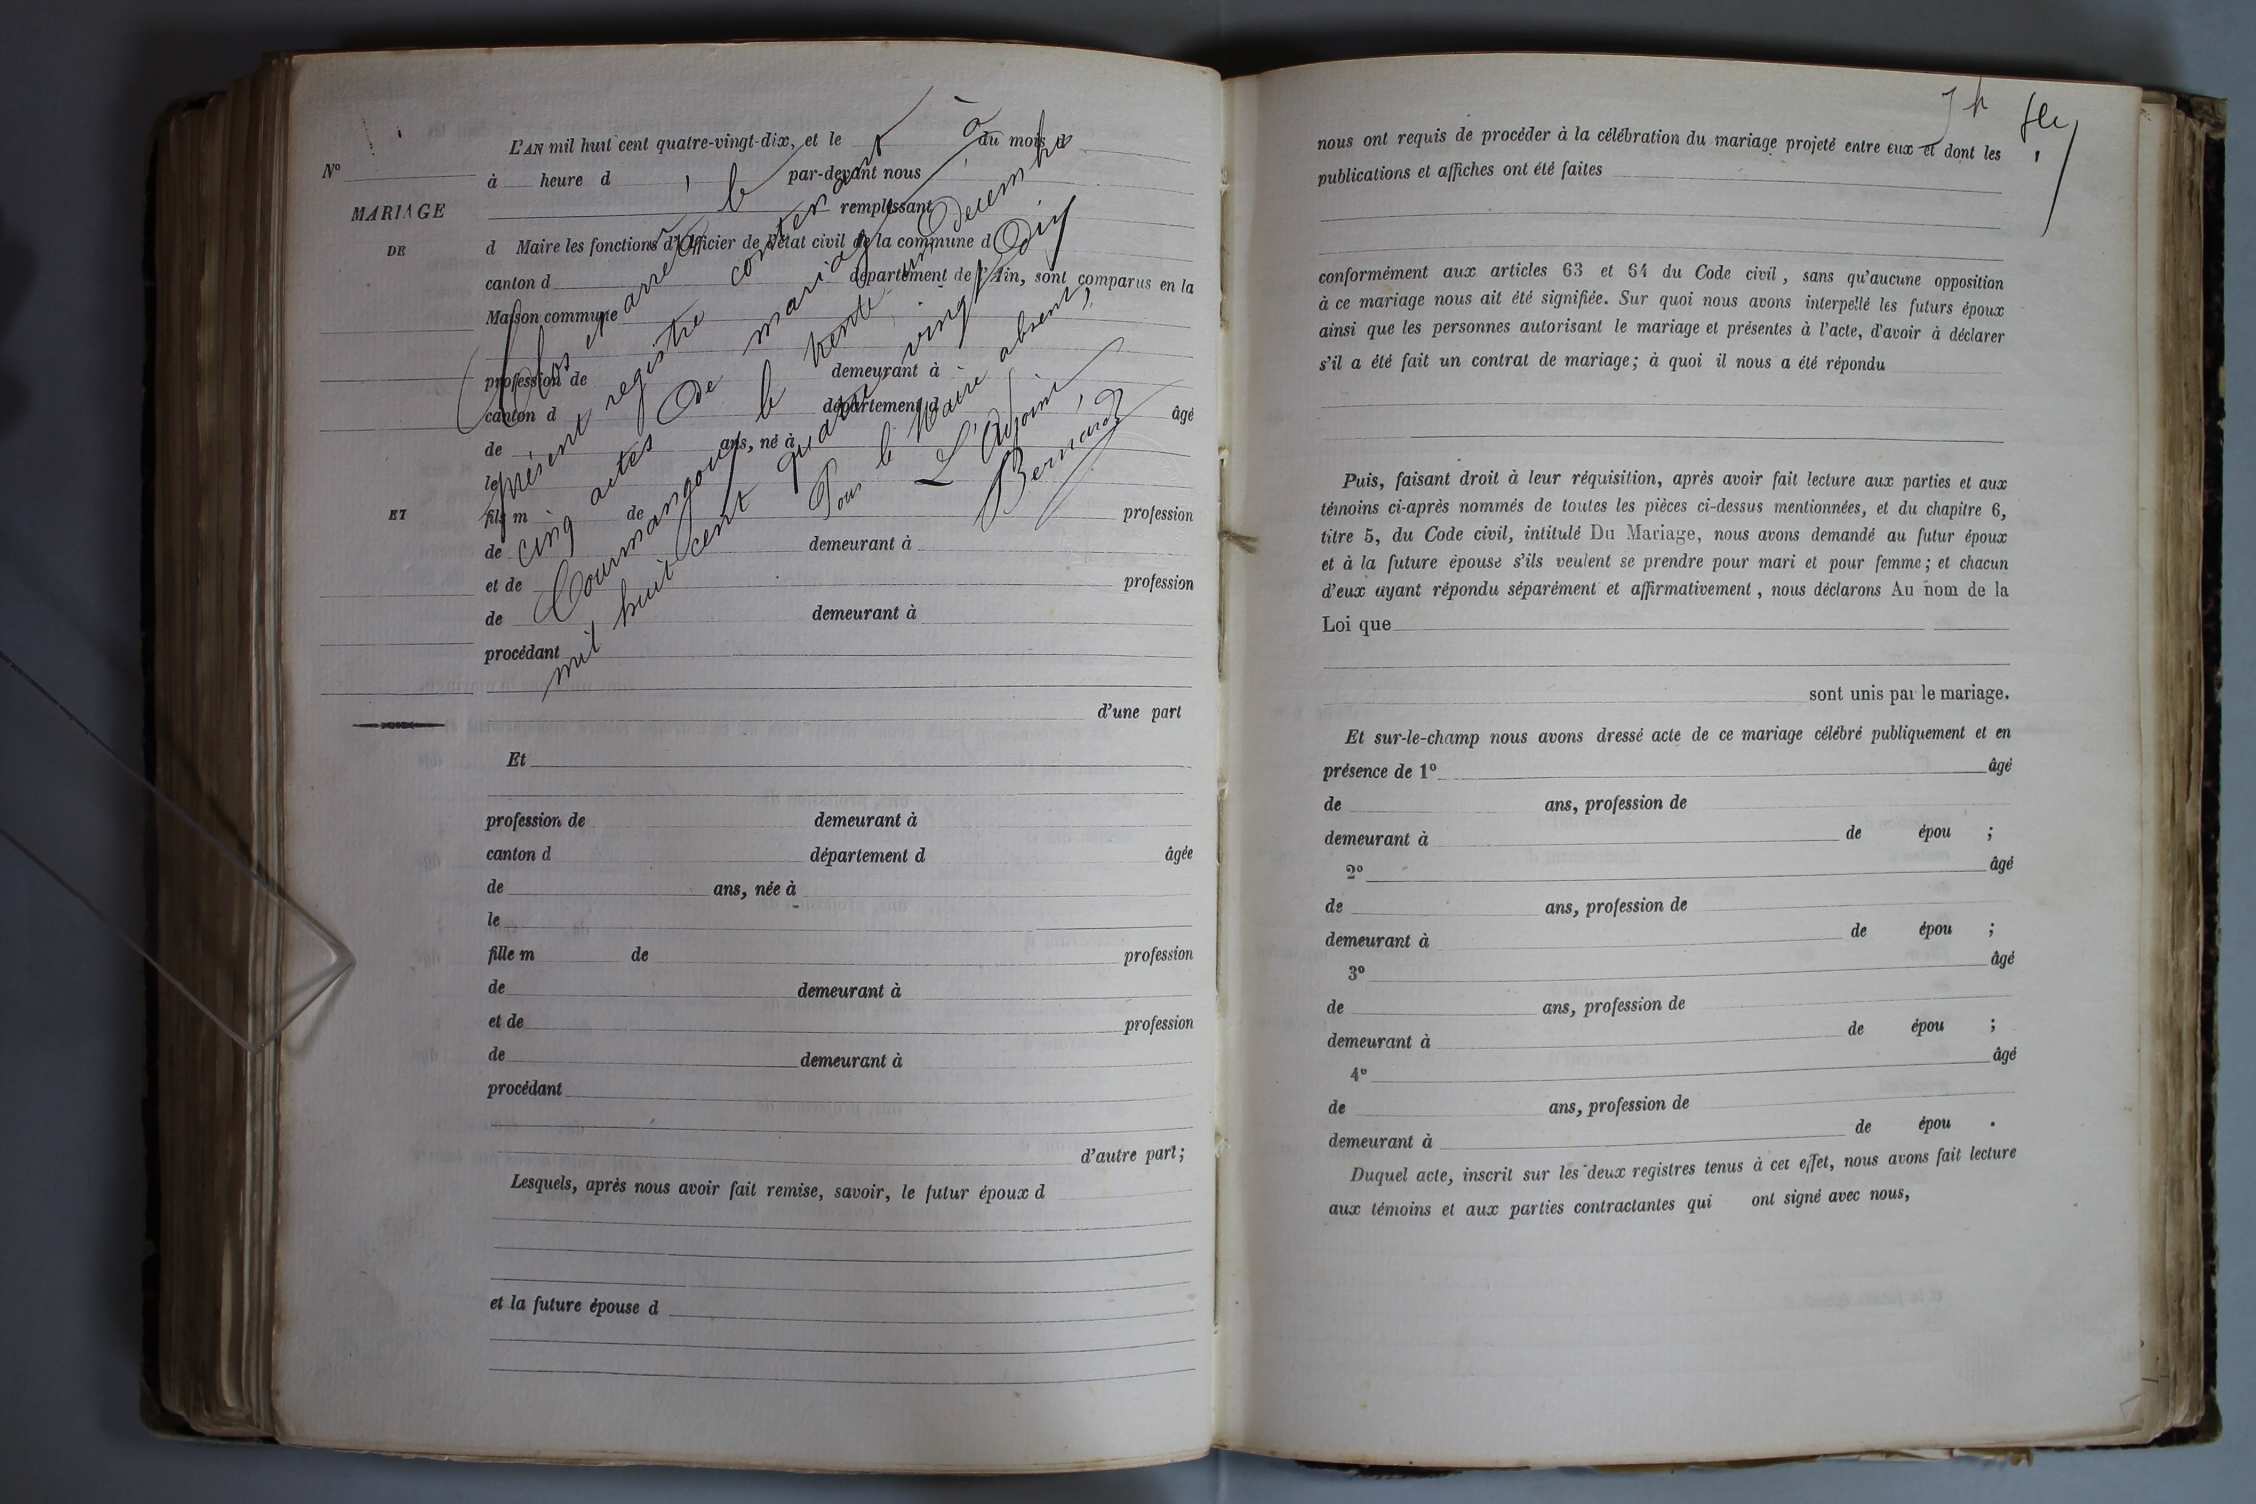 L'AN mil huit cent quatre-vingt-dix, et le du mois d
N° à heure d par-devant nous
MARIAGE
remplissant
DE
d Maire les fonctions d'Officier de l'état civil de la commune d
canton d département de l'Ain, sont comparus en la
Maison commune
profession de demeurant à
canton d département d âgé
de ans, né à
le
ET
fils m de profession
de demeurant à
et de profession
de demeurant à
procédant
d'une part
Clos et arrêté le
présent registre contenant
cinq actes de mariage à
Courmangoux le trente un Décembre
mil huit cent quatre vingt Dix
Pour le Maire absent,
L'Adjoint,
Bernardz
Et
profession de demeurant à
canton d département d âgée
de ans, née à
le
fille m de profession
de demeurant à
et de profession
de demeurant à
procédant
d'autre part;
Lesquels, après nous avoir fait remise, savoir, le futur époux d
et la future épouse d
nous ont requis de procéder à la célébration du mariage projeté entre eux et dont les
publications et affiches ont été faites
conformément aux articles 63 et 64 du Code civil, sans qu'aucune opposition
à ce mariage nous ait été signifiée. Sur quoi nous avons interpellé les futurs époux
ainsi que les personnes autorisant le mariage et présentes à l'acte, d'avoir à déclarer
s'il a été fait un contrat de mariage; à quoi il nous a été répondu
Puis, faisant droit à leur réquisition, après avoir fait lecture aux parties et aux
témoins ci-après nommés de toutes les pièces ci-dessus mentionnées, et du chapitre 6,
titre 5, du Code civil, intitulé Du Mariage, nous avons demandé au futur époux
et à la future épouse s'ils veulent se prendre pour mari et pour femme; et chacun
d'eux ayant répondu séparément et affirmativement, nous déclarons Au nom de la
Loi que
sont unis par le mariage.
Et sur-le-champ nous avons dressé acte de ce mariage célébré publiquement et en
présence de 1° âgé
de ans, profession de
demeurant à de épou ;
2° âgé
de ans, profession de
demeurant à de épou ;
3° âgé
de ans, profession de
demeurant à de épou ;
4° âgé
de ans, profession de
demeurant à de épou .
Duquel acte, inscrit sur les deux registres tenus à cet effet, nous avons fait lecture
aux témoins et aux parties contractantes qui ont signé avec nous,